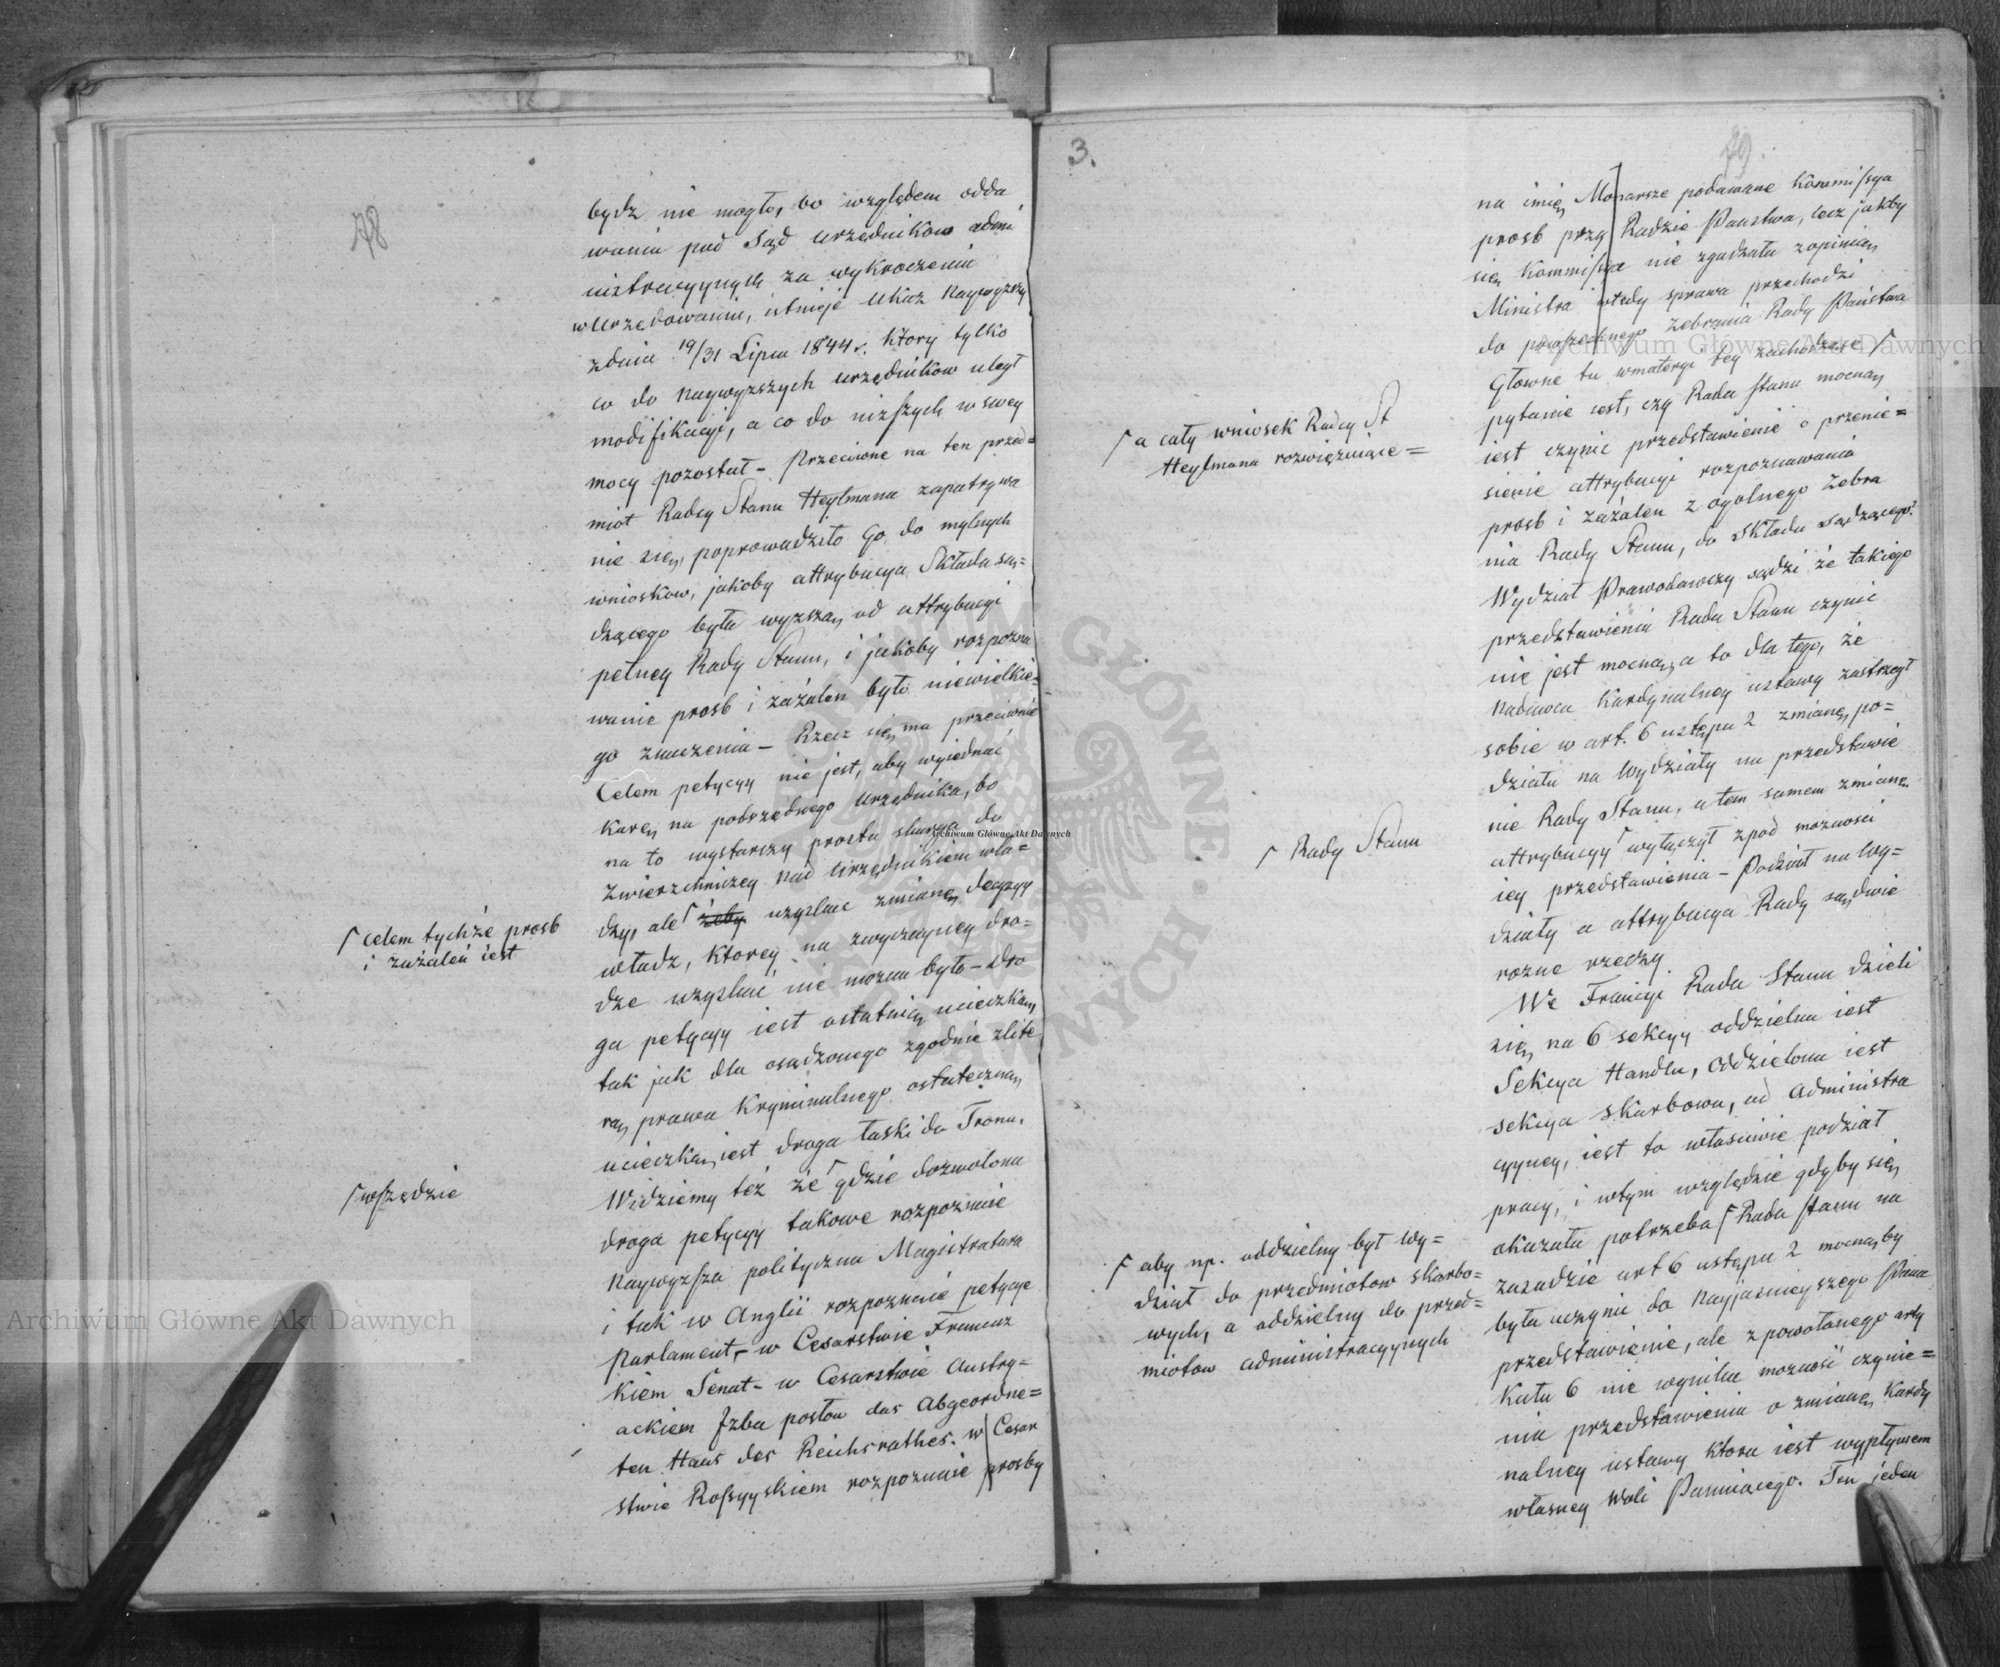 78
bydz nie mogło, bo względem odda
wania pod sąd Urzędników admi
nistracyynych za wykroczenia
w Urzędowaniu, istnieje Ukaz Naywyższy
z dnia 19/31 Lipca 1844 r. który tylko
co do Naywyższych Urzędników uległ
modifikacyi, a co do niższych w swey
mocy pozostał – Przeciwne na ten przed=
miot Radcy Stanu Heylmana zapatrywa
nie się, poprowadziło Go do mylnych
wniosków, jakoby attrybucya Składu są=
dzącego była wyższą, od attrybucyi
pełney Rady Stanu, i jakoby rozpozna
wanie prosb i zażaleń było niewielkie=
go znaczenia – Rzecz się ma przeciwnie
Celem petycyy nie jest, aby wyjednać
Karę na podrzędnego Urzędnika, bo
na to wystarczy prosta skarga do
Zwierzchniczey nad Urzędnikiem wła=
dzy, ale ⌈ żeby uzyskać zmianę decyzyy
⌈ celem tychże prosb
i zażaleń iest
władz, ktorey na zwyczayney dro=
dze uzyskać nie można było – Dro
ga petycyy iest ostatnią ucieczką,
tak jak dla osądzonego zgodnie z lite
rą prawa Kryminalnego ostateczną
ucieczką iest droga łaski do Tronu.
Widziemy też że ⌈ gdzie dozwolona
⌈ wszędzie
droga petycyy takowe rozpoznaie
Naywyższa polityczna Magistratura
i tak w Anglii rozpoznaie petycye
Parlament – w Cesarstwie Francuz
kiem Senat – w Cesarstwie Austry=
ackiem Izba posłow das Abgeordne=
ten Haus des Reichsrathes. w Cesar
stwie Rossyyskiem rozpoznaie prosby
3.
79
na imię Monarsze podawane Kommissya
prosb przy Radzie Państwa, lecz jakby
się Kommissya nie zgadzała z opinią
Ministra wtedy sprawa przechodzi
do powszechnego Zebrania Rady Państwa
Główne tu w materyi tey zachodzące ⌈
⌈ a cały wniosek Radcy St
Heylmana rozwięzuiące =
pytanie iest, czy Rada Stanu mocną
iest czynić przedstawienie o przenie=
sienie attrybucyi rozpoznawania
prosb i zażaleń z ogolnego Zebra
nia Rady Stanu, do Składu sądzącego?
Wydział Prawodawczy sądzi że takiego
przedstawienia Rada Stanu czynić
nie jest mocną, a to dla tego, że
Nadawca Kardynalney ustawy zastrzegł
sobie w art. 6 ustępu 2 zmianę po=
działu na Wydziały na przedstawie
nie Rady Stanu, a tem samem zmianę
attrybucyy ⌈ wyłączył z pod możności
⌈ Rady Stanu
iey przedstawienia – Podział na Wy=
działy a attrybucya Rady są dwie
rozne rzeczy.
We Francyi Rada Stanu dzieli
się na 6 sekcyy oddzielna iest
Sekcya Handlu, oddzielona iest
sekcya skarbowa, od Administra
cyyney, iest to właściwie podział
pracy, i w tym względzie gdyby się
okazała potrzeba ⌈ Rada Stanu na
⌈ aby np. oddzielny był Wy=
dział do przedmiotow skarbo=
wych, a oddzielny do przed=
miotow administracyynych
zasadzie art 6 ustępu 2 mocną by
była uczynić do Nayjasnieyszego Pana
przedstawienie, ale z powołanego arty
kułu 6 nie wynika możność czynie=
nia przedstawienia o zmianę Kardy
nalney ustawy ktora iest wypływem
własney Woli Panuiącego. Ten jeden
Archiwum Główne Akt Dawnych
Archiwum Główne Akt Dawnych
Archiwum Główne Akt Dawnych